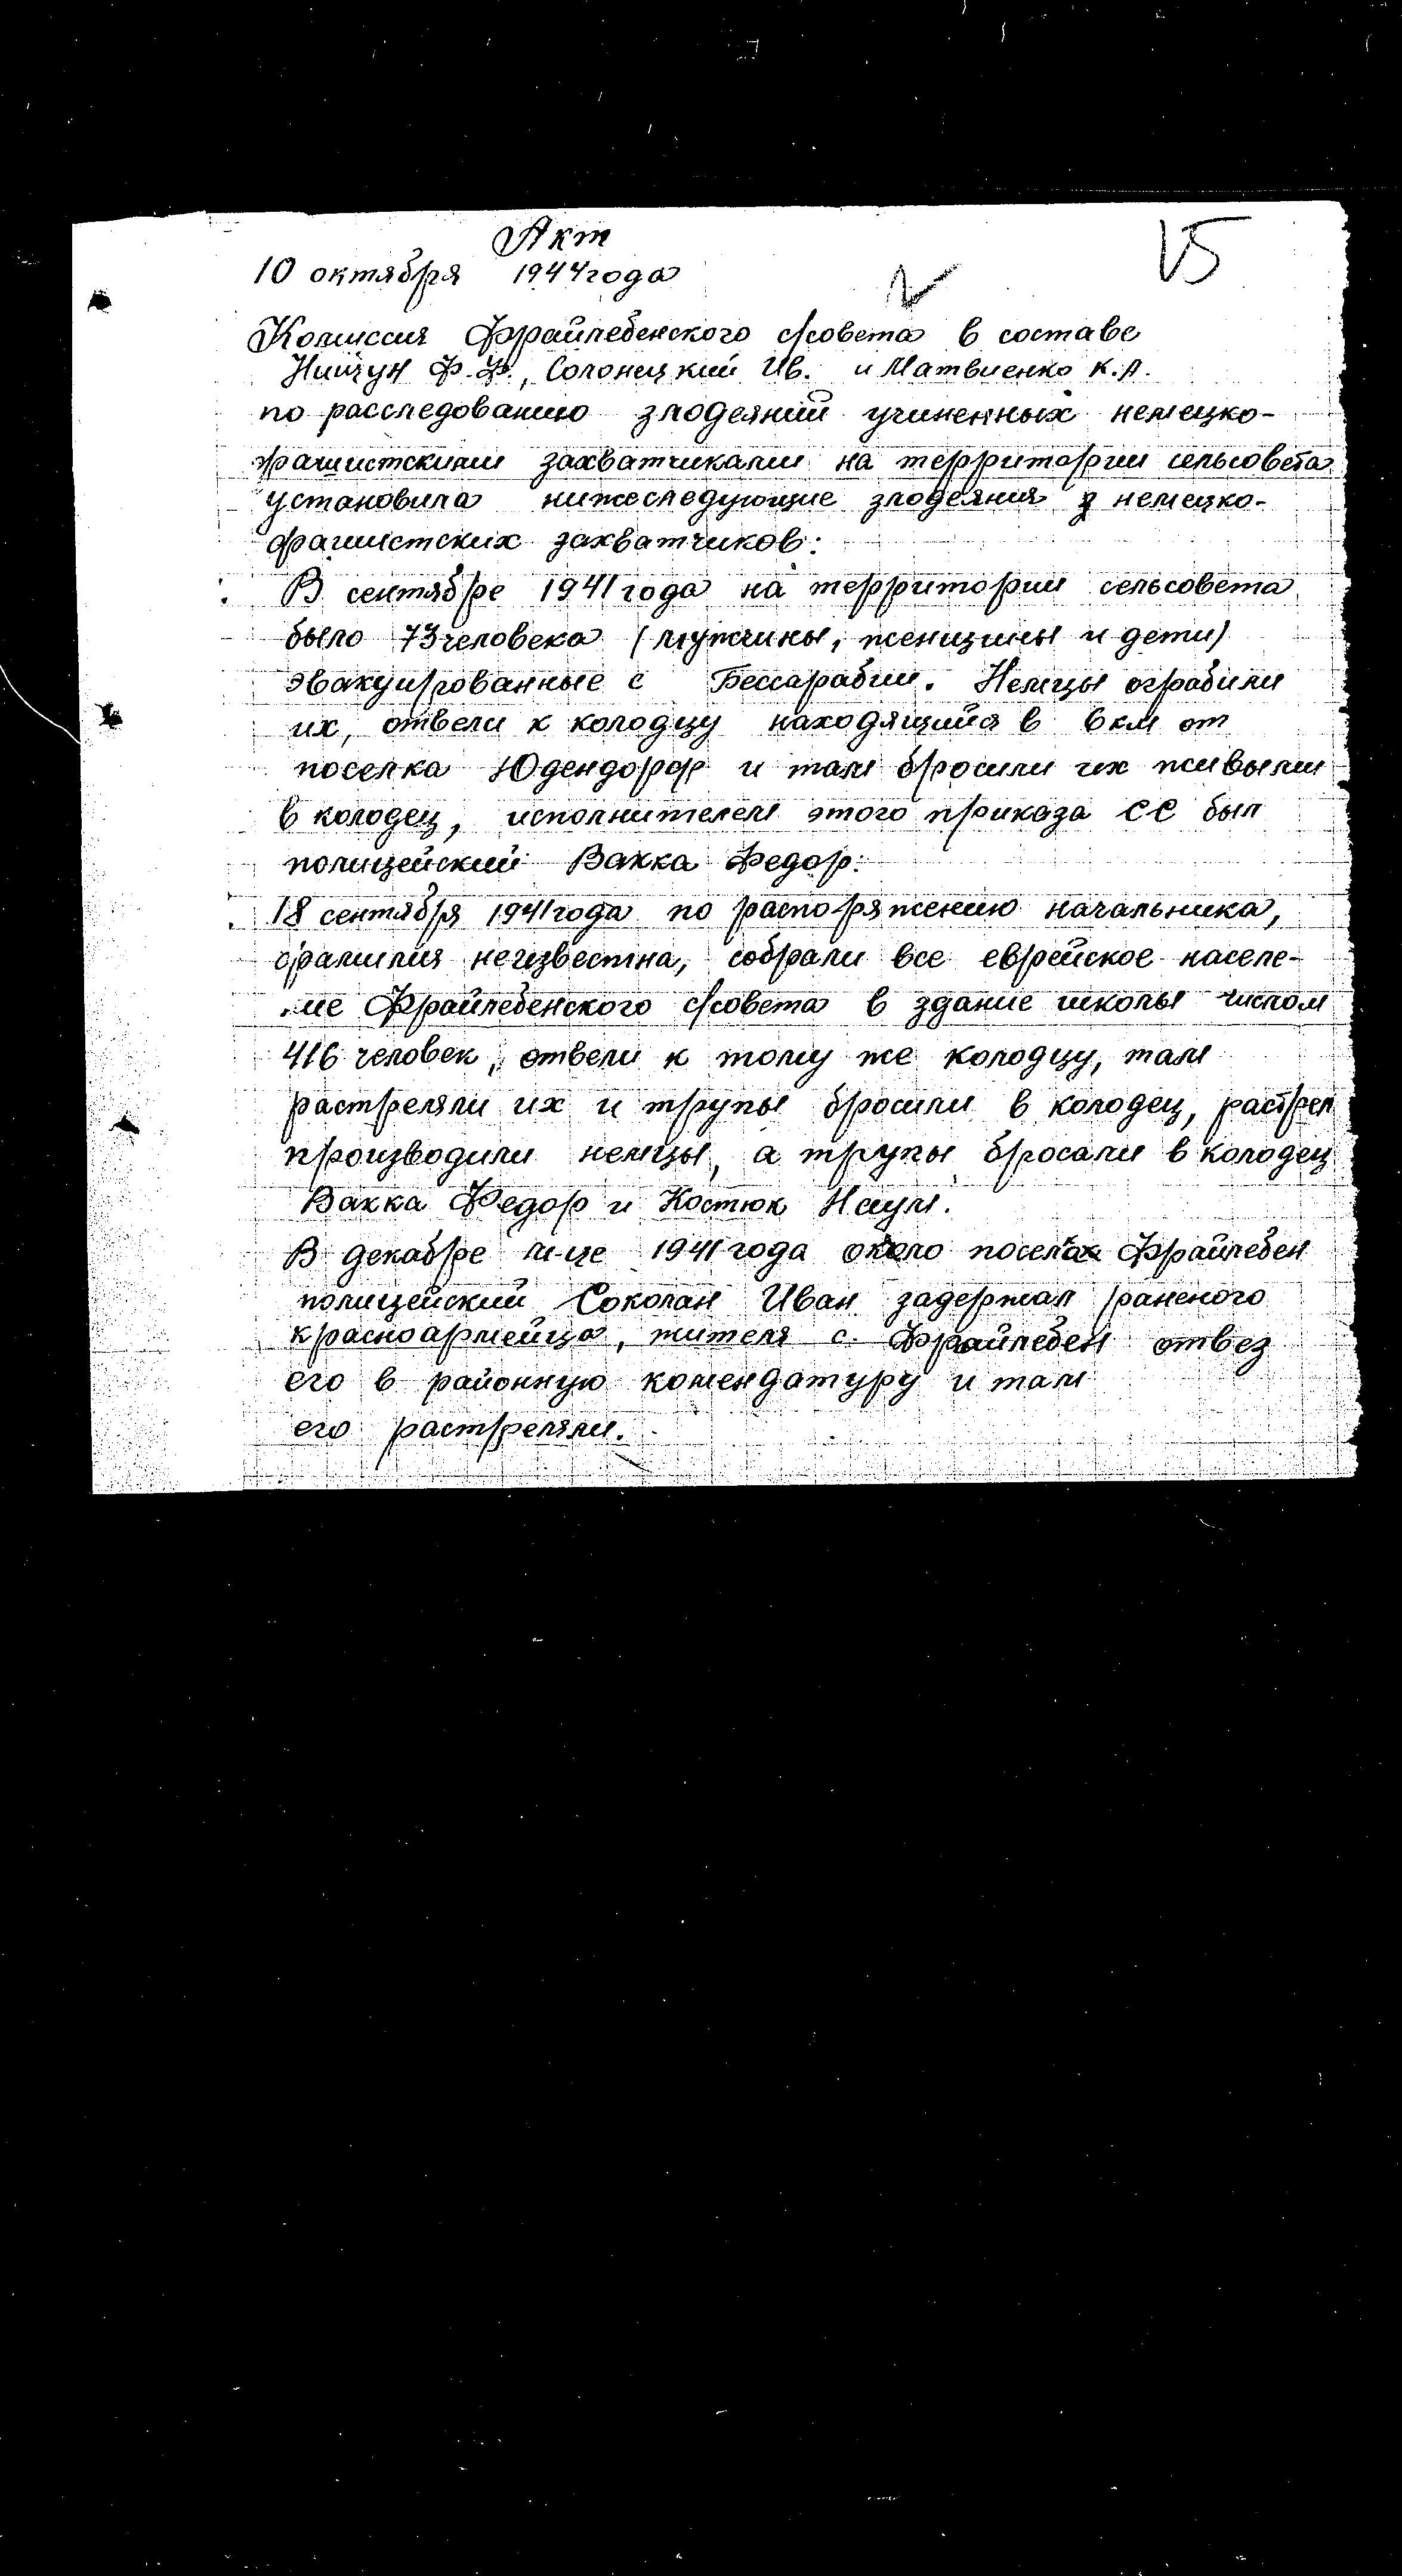 Акт
15
10 октября 1944 года
2
Комиссия Фрайлебенского с/совета в составе
Ф.Ф., Солонецкий Ив. и Матвиенко К.А.
по расследованию злодеяний учиненных немецко-
фашистскими захватчиками на территории сельсовета
установила нижеследующие злодеяния немецко-
фашистских захватчиков:
В сентябре 1941 года на территории сельсовета
было 73 человека (мужчины, женщины и дети)
эвакуированные с Бессарабии. Немцы ограбили
их, отвели к колодцу находящийся в 6 км от
поселка Юдендорф и там бросили их живыми
в колодец, исполнителем этого приказа СС был
полицейский Вакка Федор.
18 сентября 1941 года по распоряжению начальника,
фамилия неизвестна, собрали все еврейское населе-
ние Фрайлебенского с/совета в здание школы числом
416 человек, отвели к тому же колодцу, там
растреляли их и трупы бросили в колодец, растрел
производили немцы, а трупы бросали в колодец
Вакка Федор и Костюк Наум.
В декабре м-це 1941 года около Фрайлебен
полицейский Соколан Иван задержал раненого
красноармейца, жителя с. Фрайлебен отвез
его в районную комендатуру и там
его растреляли.